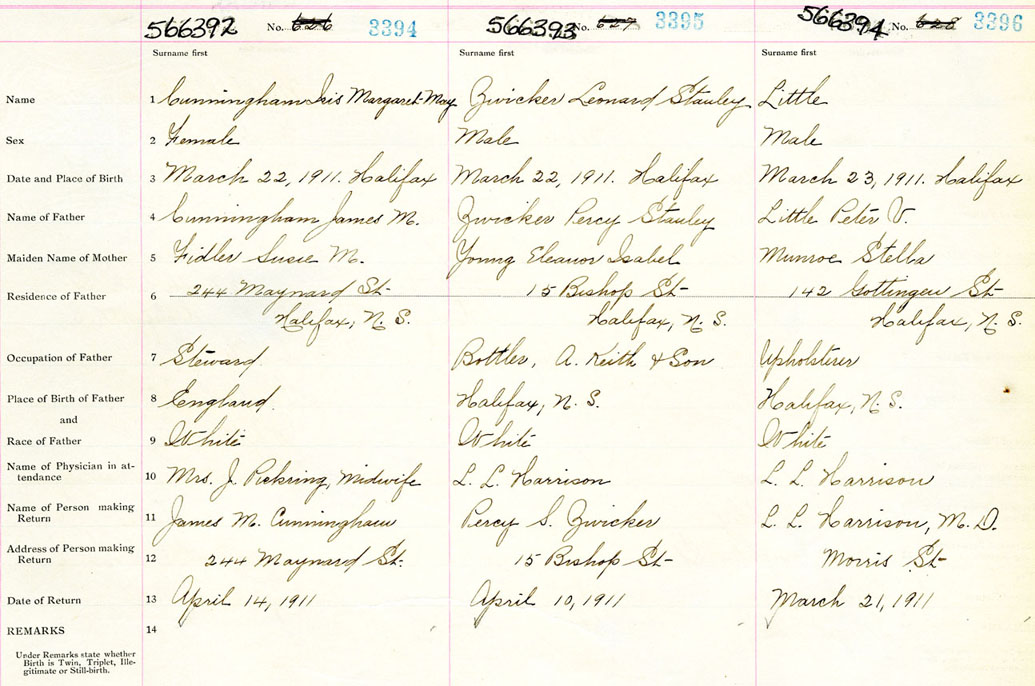 566392 No. 626 3394 566393 No. 627 3395 566394 No. 628 3396
Surname first Surname first Surname first
Name 1 Cunningham Iris Margaret May Zwicker Leonard Stanley Little
Sex 2 Female Male Male
Date and Place of Birth 3 March 22, 1911. Halifax March 22, 1911. Halifax March 23, 1911. Halifax
Name of Father 4 Cunningham James M. Zwicker Percy Stanley Little Peter V.
Maiden Name of Mother 5 Fidler Susie M. Young Eleanor Isabel Munroe Stella
Residence of Father 6 244 Maynard St- 15 Bishop St- 142 Gottingen St-
Halifax, N. S. Halifax, N. S. Halifax, N. S.
Occupation of Father 7 Steward Bottler, A. Keith & Son Upholsterer
Place of Birth of Father 8 England. Halifax, N. S. Halifax, N. S.
and
Race of Father 9 White White White
Name of Physician in at-
tendance 10 Mrs. J. Pickring, Midwife L. L. Harrison L. L. Harrison
Name of Person making
Return 11 James M. Cunningham Percy S. Zwicker L. L. Harrison, M. D.
Address of Person making
Return 12 244 Maynard St. 15 Bishop St- Morris St-
Date of Return 13 April 14, 1911 April 10, 1911 March 21, 1911
REMARKS 14
Under Remarks state whether
Birth is Twin, Triplet, Ille-
gitimate or Still-birth.